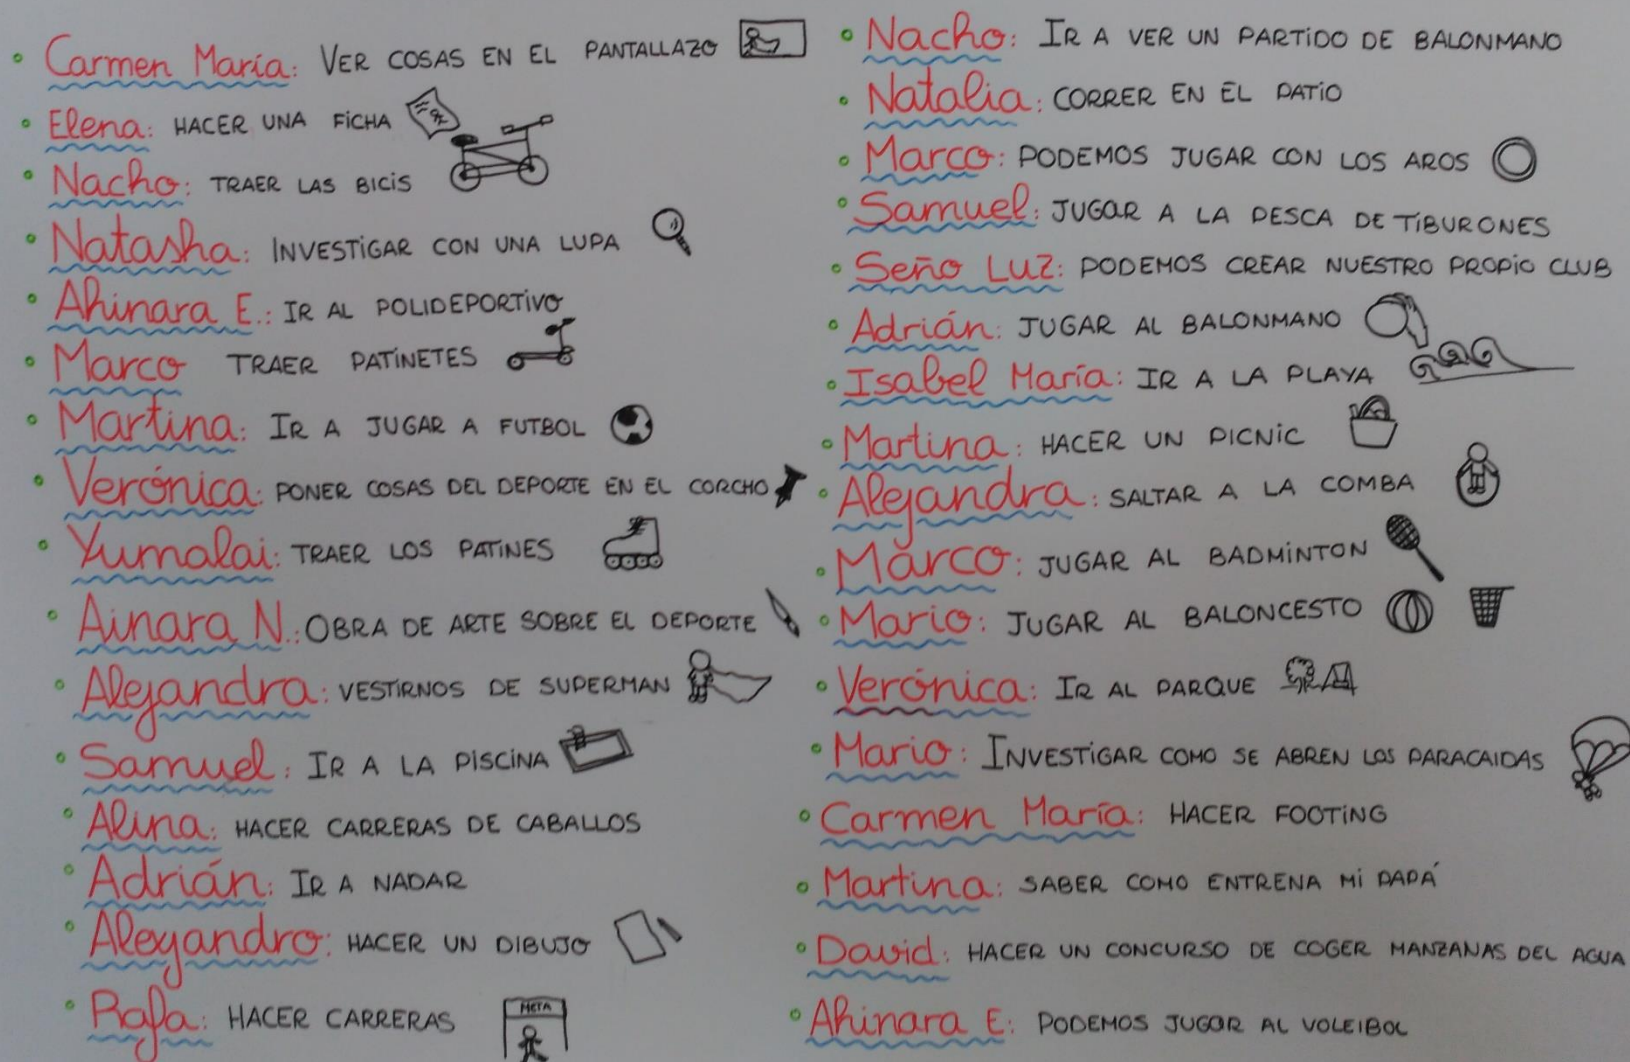 Carmen María: VER COSAS EN EL PANTALLAZO
Elena: HACER UNA FICHA
Nacho: TRAER LAS BICIS
Natasha: INVESTIGAR CON UNA LUPA
Ahinara E.: IR AL POLIDEPORTIVO
Marco TRAER PATINETES
Martina: IR A JUGAR A FUTBOL
Verónica: PONER COSAS DEL DEPORTE EN EL CORCHO
Yumalai: TRAER LOS PATINES
Ainara N.: OBRA DE ARTE SOBRE EL DEPORTE
Alejandra: VESTIRNOS DE SUPERMAN
Samuel: IR A LA PISCINA
Alina: HACER CARRERAS DE CABALLOS
Adrián: IR A NADAR
Aleyandro: HACER UN DIBUJO
Rafa: HACER CARRERAS
META
Nacho: IR A VER UN PARTIDO DE BALONMANO
Natalia: CORRER EN EL PATIO
Marco: PODEMOS JUGAR CON LOS AROS
Samuel: JUGAR A LA PESCA DE TIBURONES
Seño LUZ: PODEMOS CREAR NUESTRO PROPIO CLUB
Adrián: JUGAR AL BALONMANO
Isabel María: IR A LA PLAYA
Martina: HACER UN PICNIC
Alejandra: SALTAR A LA COMBA
Marco: JUGAR AL BADMINTON
Mario: JUGAR AL BALONCESTO
Verónica: IR AL PARQUE
Mario: INVESTIGAR COMO SE ABREN LOS PARACAIDAS
Carmen María: HACER FOOTING
Martina: SABER COMO ENTRENA MI PAPÁ
David: HACER UN CONCURSO DE COGER MANZANAS DEL AGUA
Ahinara E: PODEMOS JUGAR AL VOLEIBOL